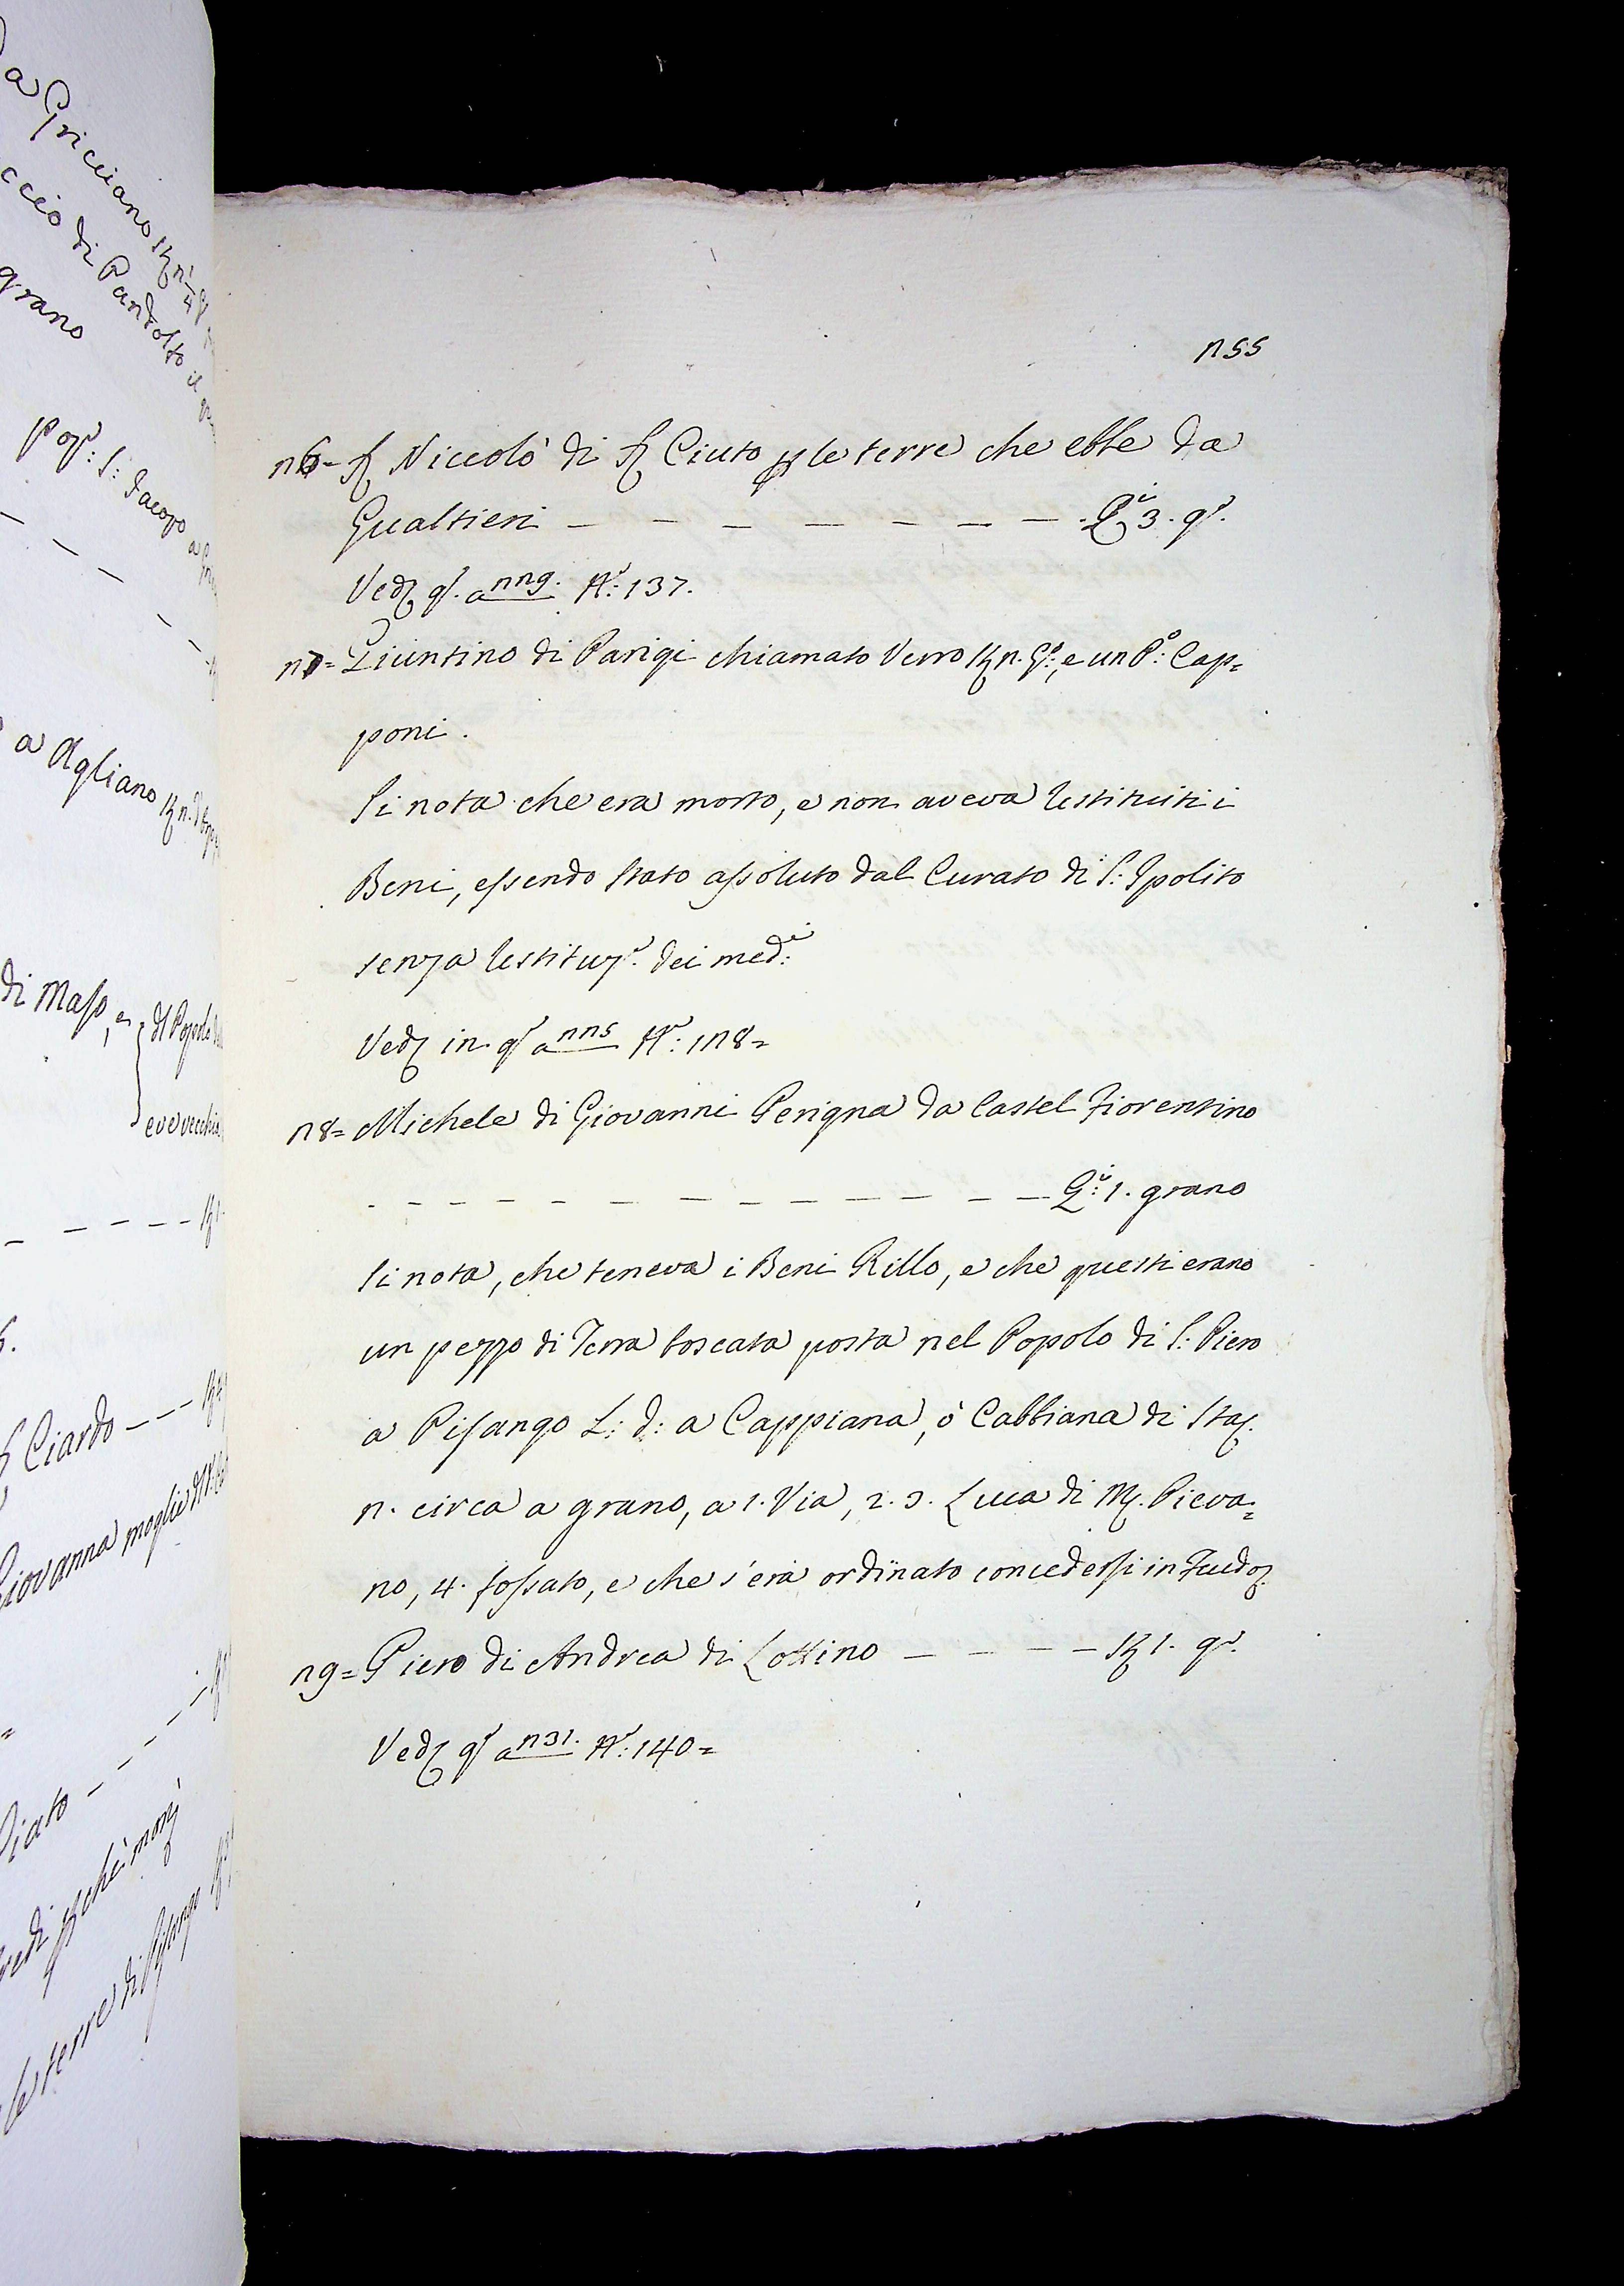 a Gricciano
ccio di Pandolfo il
grano
Pop: S: Jacopo a
a Agliano
di Maso, e
del Popolo
eve vecchia
Ciardo
Giovanna moglie
le terre di Pisango
255
26= Ser Niccolò di Ser Ciuto per le terre che ebbe da
Gualtieri — — — — — — — — Qi: 3. gr.
Ved. qs. a 229. No: 137.
27= Giuntino di Parigi chiamato Verro St. 2. Go:, e un Po: Cap=
poni.
Si nota che era morto, e non aveva restituiti i
Beni, essendo stato assoluto dal Curato di S: Ipolito
senza restituze. dei med:i
Ved. in qs a 225 No: 128=
28= Michele di Giovanni Perigna da Castel Fiorentino
— — — — — — — — — — — — Qi: 1. grano
Si nota, che teneva i Beni Rillo, e che questi erano
un pezzo di Terra boscata posta nel Popolo di S: Piero
a Pisango L: d: a Cappiana, ò Cabbiana di Sta.
2. circa a grano, a 1. Via, 2. 3. Luca di M. Pieva=
no, 4. fossato, e che s'era ordinato concedersi in Feudo.
29= Piero di Andrea di Lottino — — — — St. 1. gr.
Ved. qs a 231. No: 140=